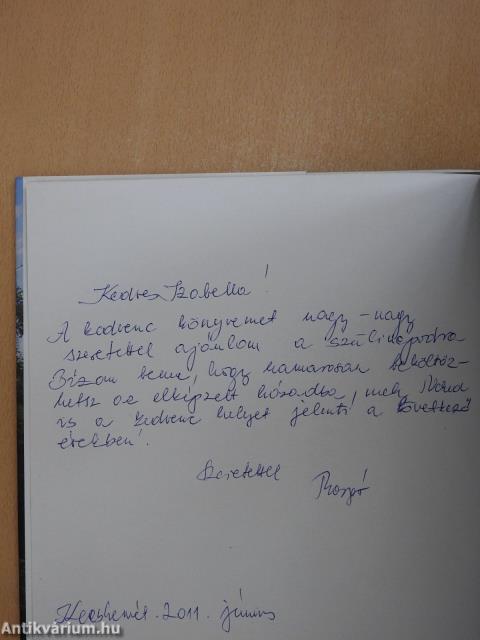 Kedves Izabella!
A kedvenc könyvemet nagy-nagy
szeretettel ajánlom a szülinapodra
Bízom benne, hogy hamarosan beköltöz-
hetsz az elképzelt házadba, mely Neked
is a kedvenc helyet jelenti a következő
években!
Szeretettel
Kecskemét. 2011. június
Antikvárium.hu